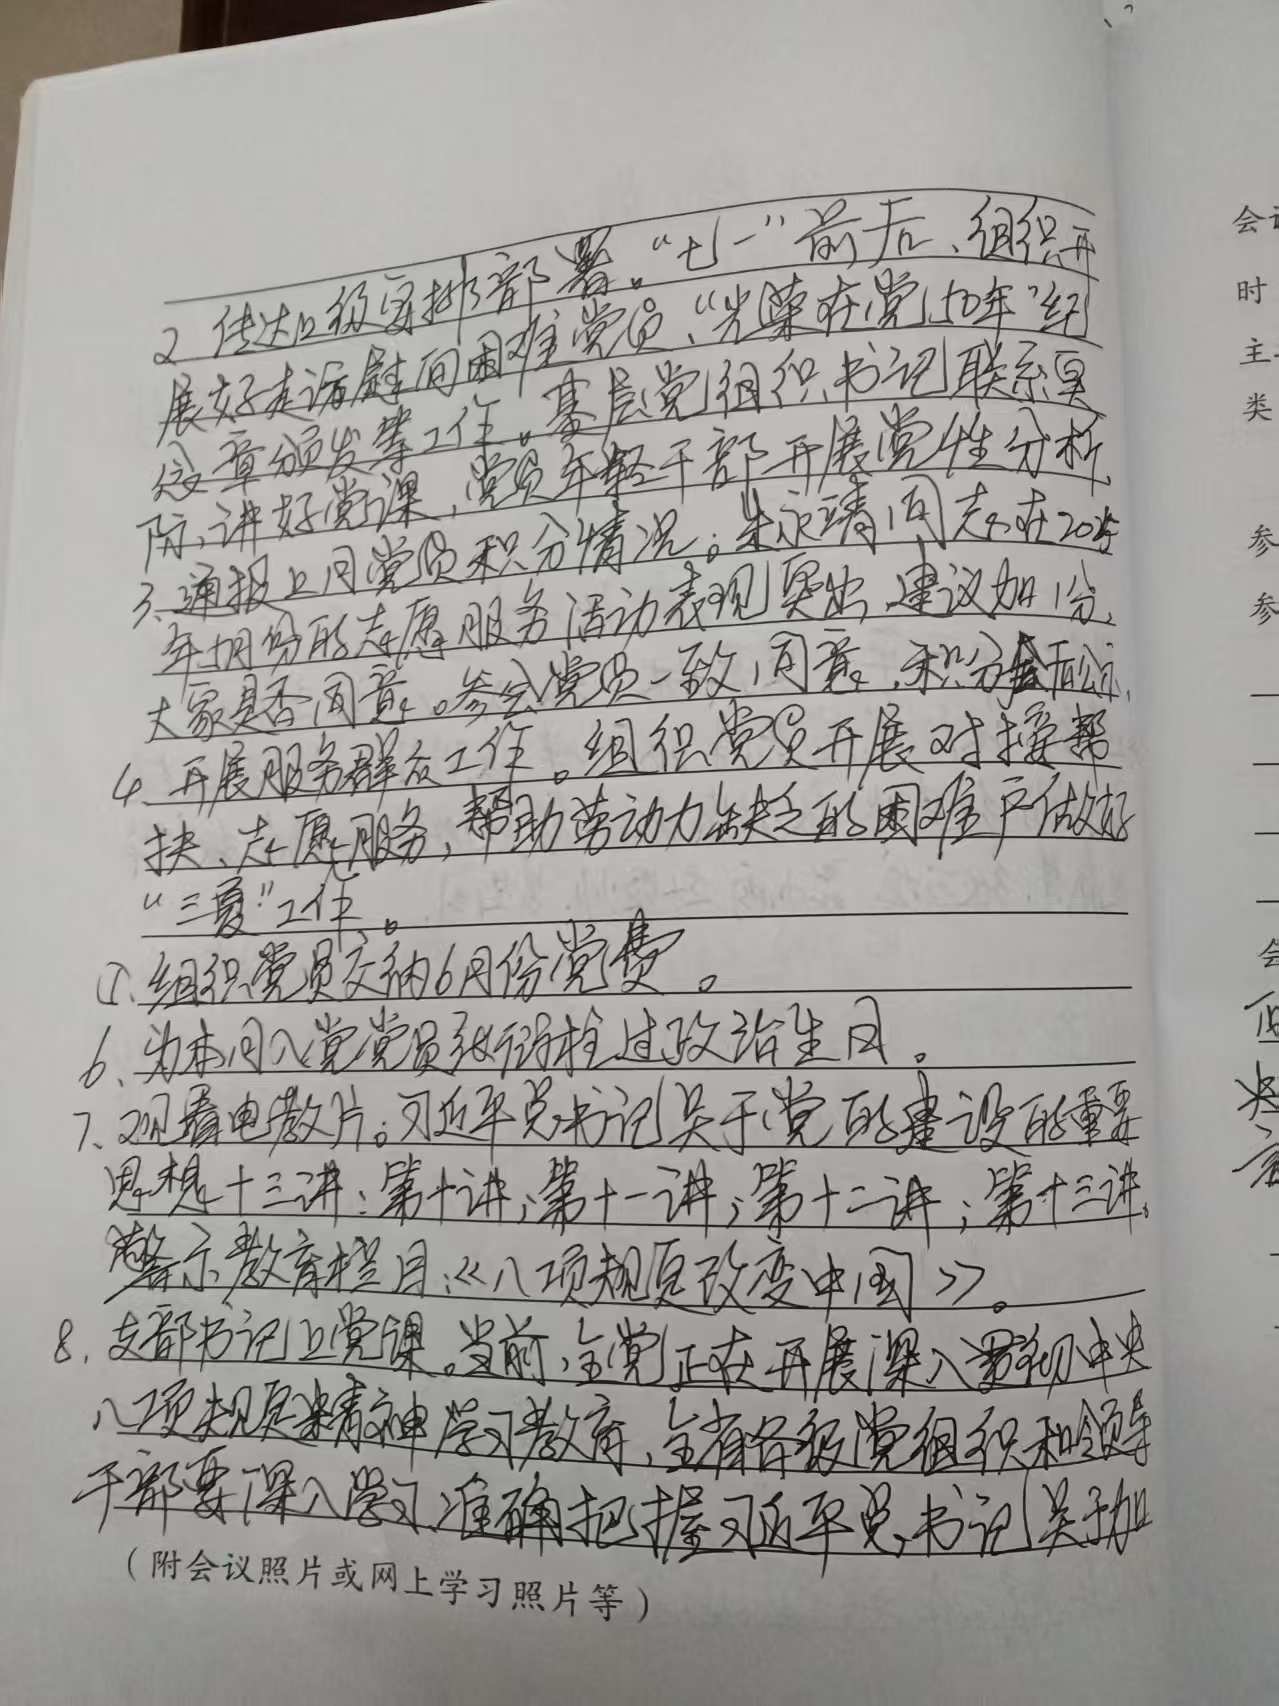 2、传达上级安排部署。“七一”前后、组织开
展好走访慰问困难党员、“光荣在党50年”纪
念章颁发等工作。基层党组织书记联系实
际、讲好党课、党员年轻干部开展党性分析、
3、通报上月党员积分情况。朱永靖同志在2025
年5月份的志愿服务活动表现突出、建议加1分、
大家是否同意。参会党员一致同意、积分会后公示、
4、开展服务群众工作。组织党员开展对接帮
扶、志愿服务,帮助劳动力缺乏的困难户做好
“三夏”工作。
5、组织党员交纳6月份党费。
6、为本月入党党员 过政治生日。
7、观看电教片。习近平总书记关于党的建设的重要
思想十三讲:第十讲;第十一讲;第十二讲;第十三讲、
警示教育栏目:《八项规定改变中国》。
8、支部书记上党课。当前,全党正在开展深入贯彻中央
八项规定精神学习教育,全省各级党组织和领导
干部要深入学习、准确把握习近平总书记关于加
(附会议照片或网上学习照片等)
会
时
主
类
参
参
会